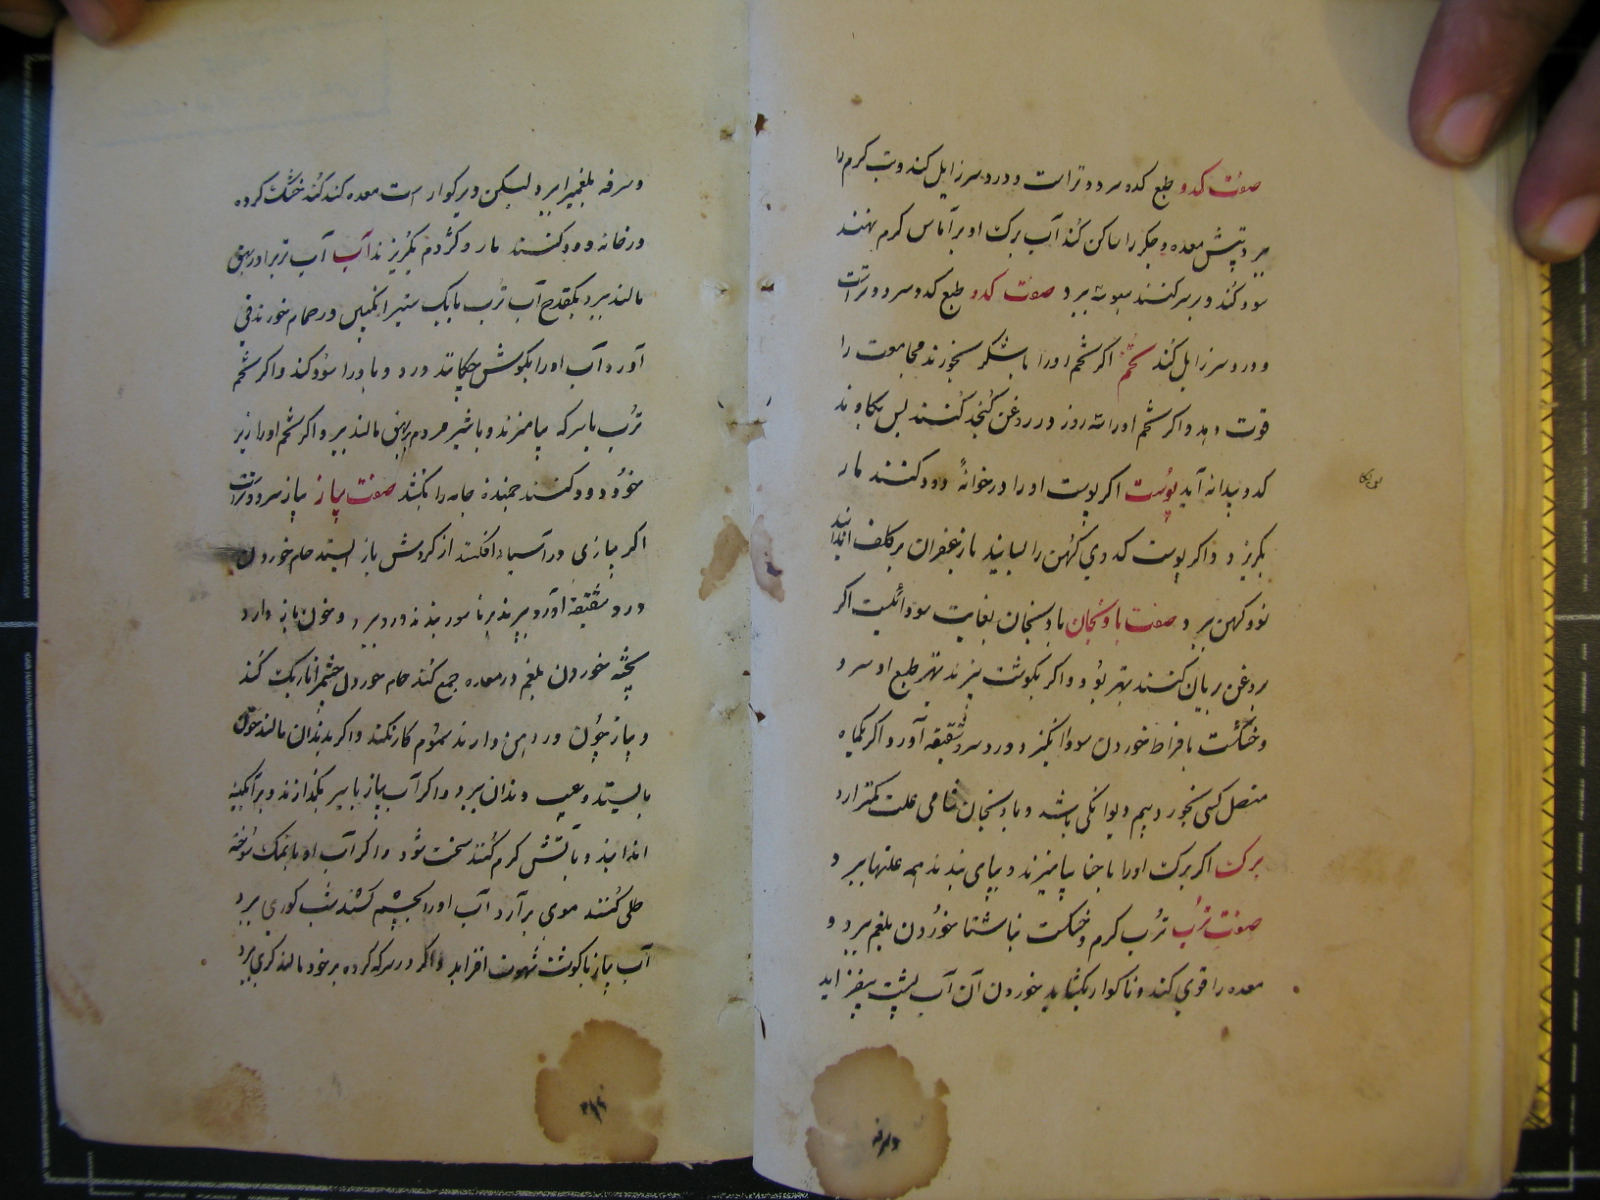 صفت کدو طبع کدو سرد و تراست و درد سر زایل کند و تب کرم را
ببرد و تپش معده و جکر را ساکن کند آب برک او بر آماس کرم نهند
سود کند و بر سر کنند سبوسه ببرد صفت کدو طبع کدو سرد و تراست
و درد سر زایل کند تخم اکر تخم او را با شکر بخورند مجامعت را
قوت دهد و اکر تخم او را سه روز در روغن کنجد کنند پس بکاوند
کدو بیدانه آید پوست اکر پوست او را در خوانه دود کنند مار
بکریزد و اکر پوست کدوی کهن را بسایند با زعفران بر کلف اندایند
نو و کهن ببرد صفت بادنجان بادنجان بغایت سودائیست اکر
بروغن بریان کنند بهتر بود و اکر بکوشت پزند بهتر طبع او سرد
و خشکست بافراط خوردن سودا انکیزد و درد سر و شقیقه آورد و اکر یکماه
متصل کسی بخورد بیم دیوانکی باشد و بادنجان خامی علت کمتر ارد
برک اکر برک او را با حنا بیامیزند و بپای بندند همه علتها ببرد
صفت ترب ترب کرم و خشکست ناشتا خوردن بلغم ببرد و
معده را قوی کند و ناکوار بکشاید خوردن آن آب پشت بیفزاید
وسرفه
و سرفه بلغمی را ببرد لیکن دیرکوار است معده کند کند خشک کرده
در خانه دود کنند مار و کژدم بکریزند آب آب ترب را در بهق
مالند ببرد یکقدح آب ترب با یک سیر انکبین در حمام خورند قی
آورد آب او را بکوش چکانند درد و باد را سود کند و اکر تخم
ترب با سرکه بیامیزند و با شیر مردم بر بهق مالند ببرد و اکر تخم او را زیر
خود دود کنند جمنده جامه را بکشد صفت پیاز پیاز سرد و تراست
اکر پیازی در آسیا افکنند از کردش باز ایستد خام خوردن
درد شقیقه آورد بپزند بر ناسور بندند درد ببرد و خون باز دارد
پخته خوردن بلغم در معده جمع کند خام خوردن چشم را تاریک کند
و پیاز چون در دهن دارند سموم کار نکند و اکر بدندان مالند خون
بایستد و عیب دندان ببرد و اکر آب پیاز با سیر بکدازند و بر آبکینه
اندایند و بآتش کرم کنند سخت شود و اکر آب او با نمک سوخته
طلی کنند موی برآرد آب او را بچشم کشند شب کوری ببرد
آب پیاز با کوشت شهوت افزاید و اکر در سرکه کرده بر خود مالند کری ببرد